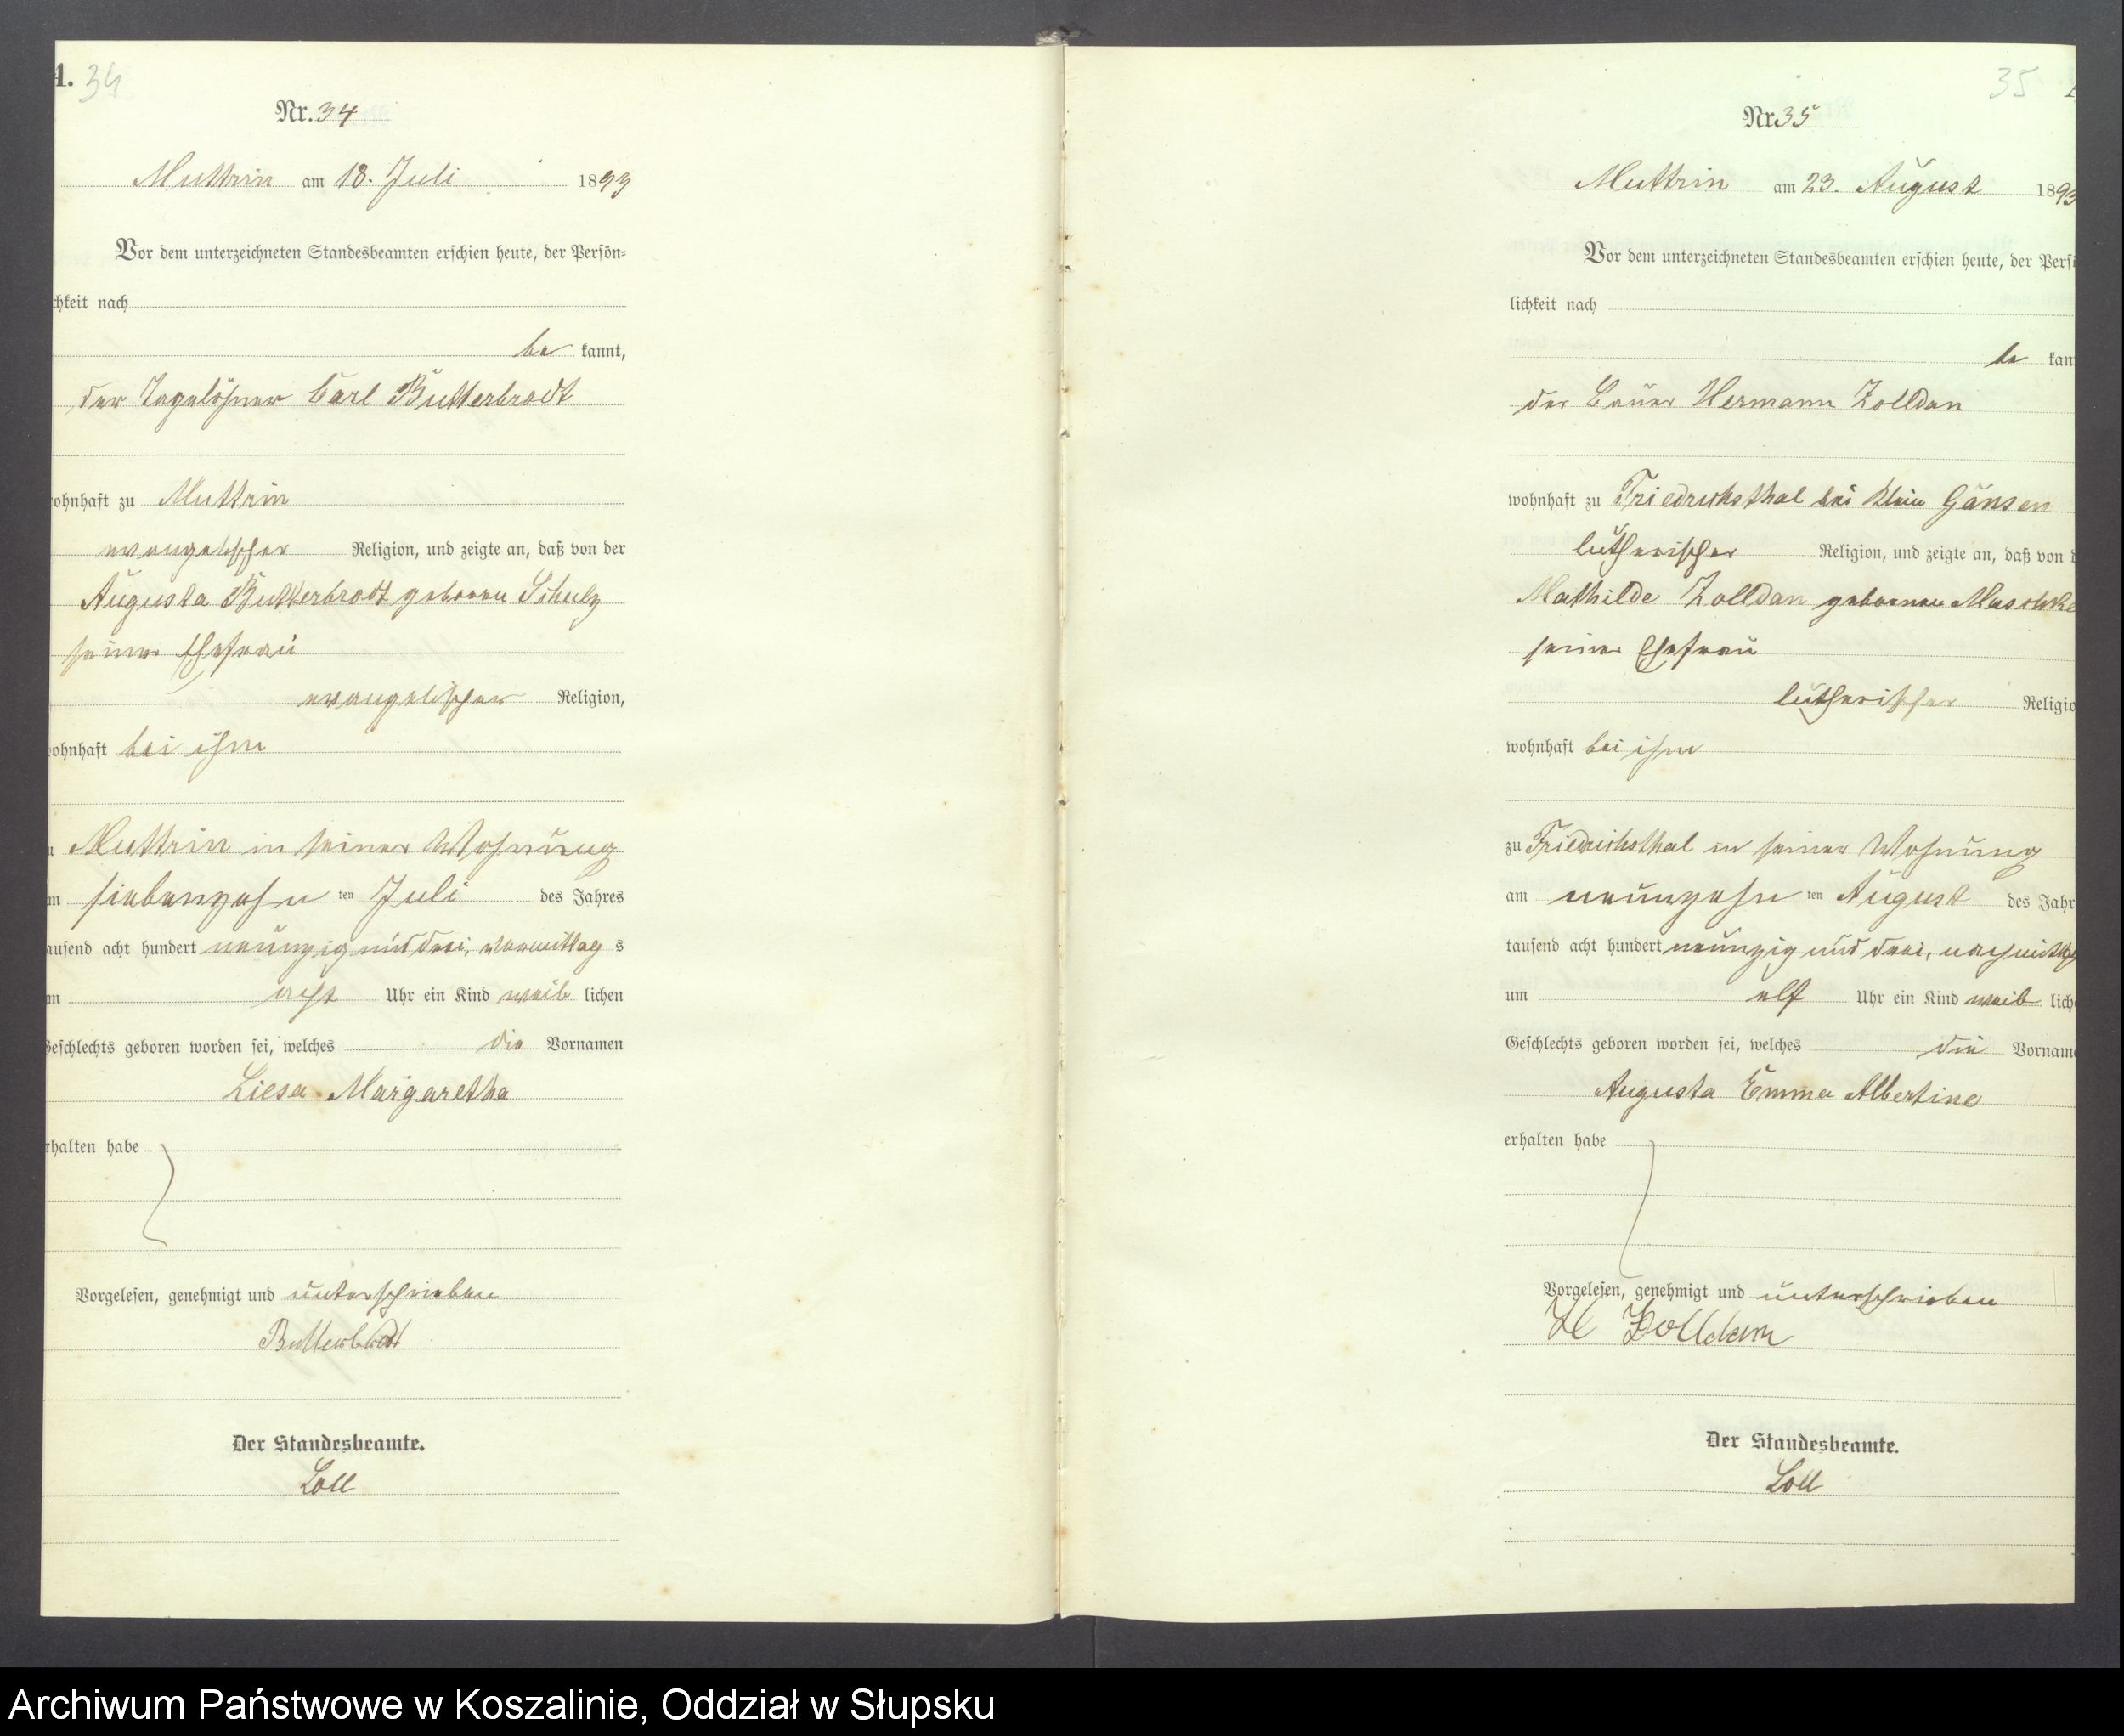 A. 34
Nr. 34
Muttrin am 18. Juli 1893
Vor dem unterzeichneten Standesbeamten erschien heute, der Persön=
chkeit nach
be kannt,
der Tagelöhner Carl Butterbrodt
ohnhaft zu Muttrin
evangelischer Religion, und zeigte an, daß von der
Augusta Butterbrodt geboren Schulz
seiner Ehefrau
evangelischer Religion,
ohnhaft bei ihm
u Muttrin in seiner Wohnung
m siebenzehn ten Juli des Jahres
ausend acht hundert neunzig und drei, vormittag s
m acht Uhr ein Kind weib lichen
Geschlechts geboren worden sei, welches die Vornamen
Liesa Margaretha
rhalten habe
Vorgelesen, genehmigt und unterschrieben
Butterbrodt
Der Standesbeamte.
Loll
35
Nr. 35
Muttrin am 23. August 1893
Vor dem unterzeichneten Standesbeamten erschien heute, der Persö
lichkeit nach
be kan
der Bauer Hermann Zolldan
wohnhaft zu Friedrichsthal bei Klein Gansen
lutherischer Religion, und zeigte an, daß von d
Mathilde Zolldan geborenen Maschke
seiner Ehefrau
lutherischer Religio
wohnhaft bei ihm
zu Friedrichsthal in seiner Wohnung
am neunzehn ten August des Jahr
tausend acht hundert neunzig und drei, nachmittag
um elf Uhr ein Kind weib lich
Geschlechts geboren worden sei, welches die Vorname
Augusta Emma Albertine
erhalten habe
Vorgelesen, genehmigt und unterschrieben
H Zolldam
Der Standesbeamte.
Loll
Archiwum Państwowe w Koszalinie, Oddział w Słupsku